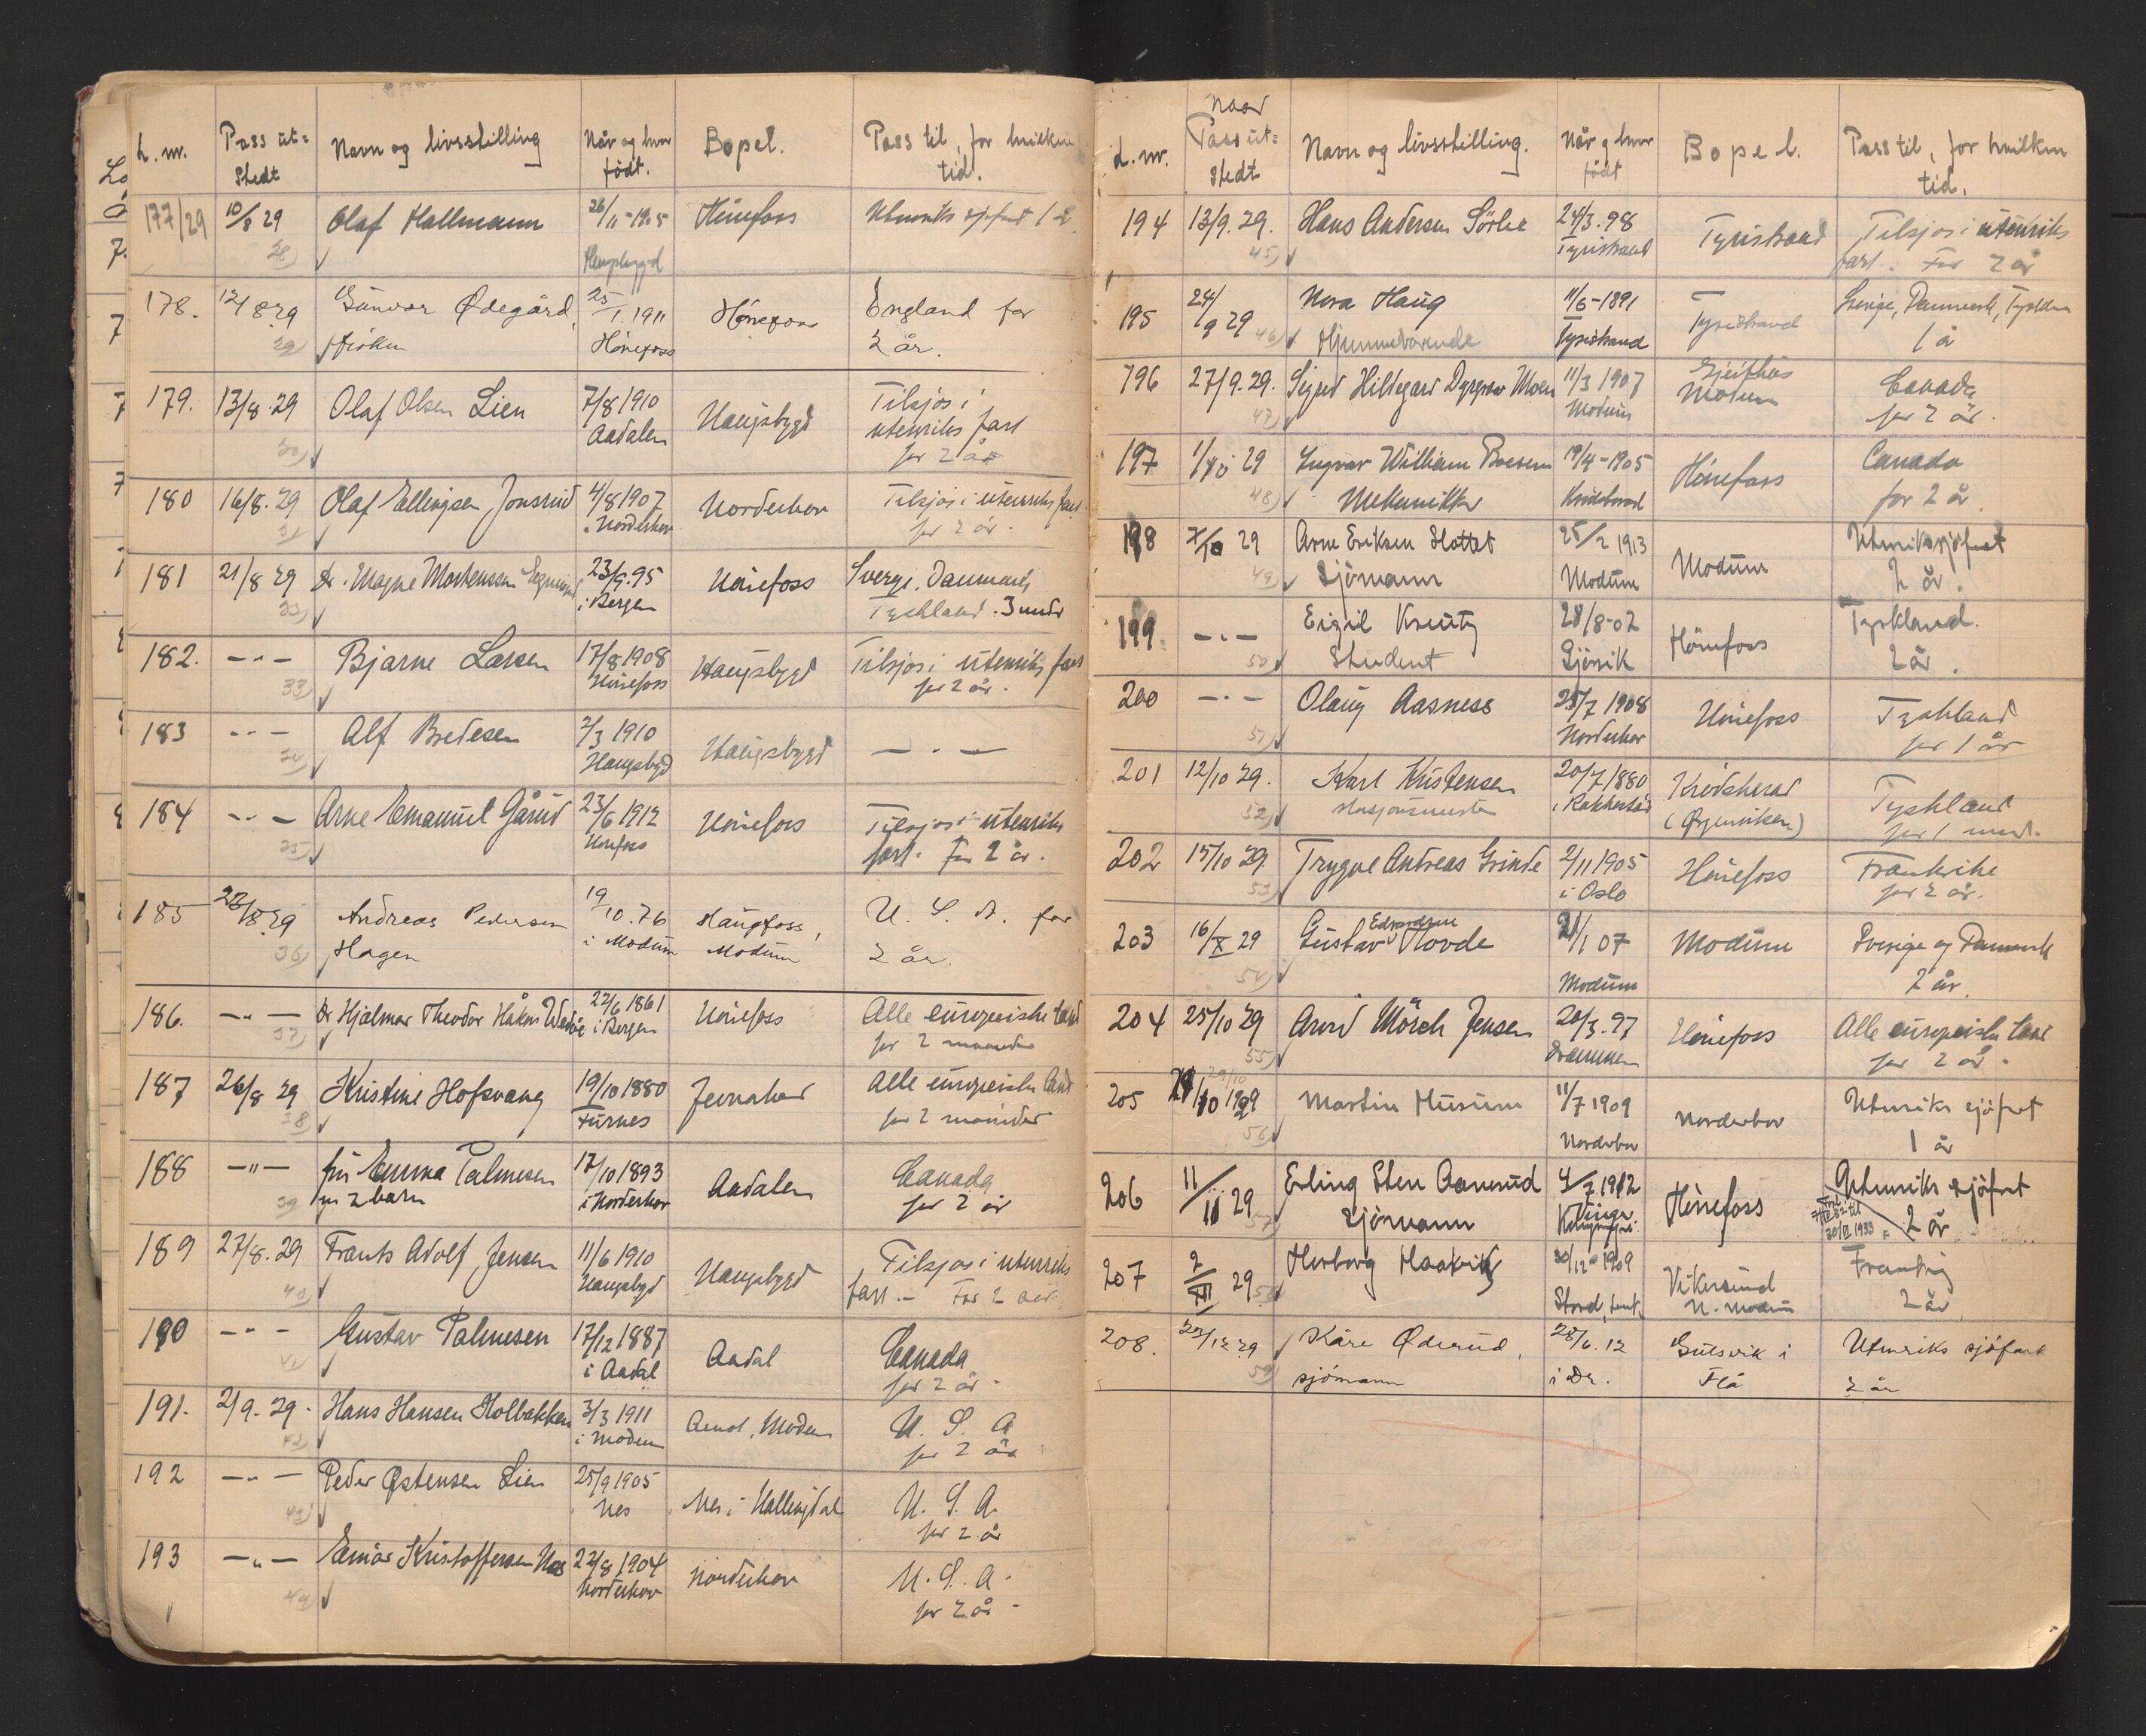 L. nr. Pass ut= Navn og livsstilling Når og hvor Bopel. Pass til, for hvilken
stedt født. tid.
177/29 10/8 29 Olaf Hallmann 26/11-1905 Hönefoss Utenriks sjøfart
28) Haugsbygd
178. 12/8 29 Gunvor Ødegård, 25/1.1911 Hönefoss England for
29) frøken Hönefoss 2 år.
179. 13/8.29 Olaf Olsen Lien 7/8 1910 Haugsbygd Tilsjøs i
Aadalen utenriks fart
30) for 2 år
180 16/8.29 Olaf Ellingsen Jonsrud 4/8 1907 Norderhov Tilsjøs i utenriks fart
31) i Norderhov for 2 år.
181 21/8 29 Dr. Magne Mortensen 23/9.95 Hönefoss Sverge, Danmark,
i Bergen Tyskland. 3 mndr
182. — " — Bjarne Larsen 17/8 1908 Haugsbygd Tilsjøs i utenriks fart
33) Hönefoss for 2 år.
183 — " — Alf Bredesen 2/3 1910 Haugsbygd — " —
34) Haugsbygd
184 — " — Arne Emanuel Gårud 23/6 1912 Hönefoss Tilsjøs i utenriks
35) Hönefoss fart. For 2 år.
185 22/8 29 Andreas Pedersen 19/10.76 Haugfoss, U. S. A. for
36) Hagen i Modum Modum 2 år.
186. — " — Dr Hjalmar Theodor Håkon 22/6 1861 Hönefoss Alle europeiske land
37) i Bergen for 2 maaneder
187 26/8 29 Kristine Hofsvang 19/10 1880 Jevnaker Alle europeiske land
38) Furnes for 2 måneder
188 — " — fru Emma Palmesen 17/10 1893 Aadalen Canada
39) m 2 barn i Norderhov for 2 år
189 27/8.29 Frants Adolf Jensen 11/6 1910 Haugsbygd Tilsjøs i utenriks
40) Haugsbygd fart. — For 2 aar
190 — " — Gustav Palmesen 17/12 1887 Aadal Canada
41) i Aadal for 2 år.
191. 2/9.29. Hans Hansen Kolbakken 3/3 1911 Aamot, Modum U. S. A
42) i Modum for 2 år
192 — " — Peder Østensen Lien 25/9 1905 Nes i Hallingdal U. S. A.
43) Nes for 2 år
193 — " — Einar Kristoffersen 22/8 1904 Norderhov U. S. A.
44) Norderhov for 2 år.
Naar
L. nr. Pass ut= Navn og livsstilling. Når og hvor Bopel. Pass til, for hvilken
stedt født tid.
194 13/9.29. Hans Andersen Sörlie 24/3.98 Tyristrand Tilsjøs i utenriks
45) Tyristrand fart. For 2 år
195 24/9 29 Nora Haug 11/6-1891 Tyristrand Sverige, Danmark, Tyskland
46) Hjemmeværende Tyristrand 1 år
196 27/9.29. Sigrid Hildegard Moen 11/3 1907 Gjeithus Canada
47) Modum Modum for 2 år.
197 1/10 29 Ingvar William 19/4-1905 Hönefoss Canada
48) Mekaniker for 2 år
198 7/10 29 Arne Eriksen Slottet 25/2 1913 Modum Utenrikssjøfart
49) Sjömann Modum 2 år.
199 — " — Eigil Kreutz 28/8-02 Hönefoss Tyskland.
50) Student Gjövik 2 år.
200 — " — Olaug Aasness 25/7 1908 Hönefoss Tyskland
51) Norderhov for 1 år
201 12/10 29. Karl Kristensen 20/7 1880 Krödsherad Tyskland
52) stasjonsmester i Rakkestad for 1 mnd.
202 15/10 29. Trygve Andreas Grinde 2/11 1905 Hönefoss Frankrike
53) i Oslo for 2 år.
203 16/X 29 Gustav Edvardsen Hovde 21/1 07 Modum Sverige og Danmark
54) Modum 2 år
204 25/10 29 Arvid Mörch Jensen 20/3.97 Hönefoss Alle europeiske land
55) Drammen for 2 år.
205 29/10 1929 Martin Husum 11/7 1909 Norderhov Utenriks sjöfart
56) Norderhov 1 år
206 11/11 29 Erling Sten Aamrud 4/7.1912 Hönefoss Utenriks sjöfart
57) Sjömann 2 år
30/VI 1933
207 2/XII 29 Herborg Haakvik 30/12-1909 Vikersund Frankrig
58) Stord N. Modum 2 år
208. 27/12 29 Kåre Øderud, 28/6.12 Gulsvik i Utenriks sjöfart
59) sjömann i Dr. Flå 2 år